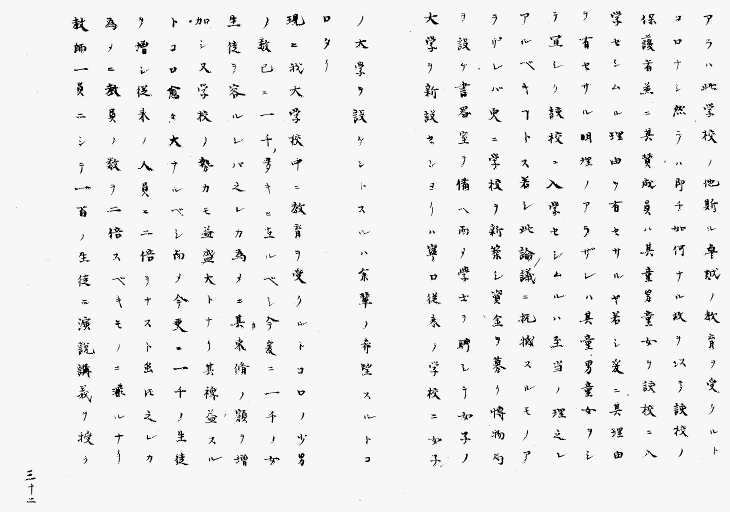 アラハ此学校ノ他斯ル卓越ノ教育ヲ受クルト
コロナシ然ラハ即チ如何ナル故ヲ以テ該校ノ
保護者並ニ其賛成員ハ其童男童女ヲ該校ニ入
学セシムル理由ヲ有セサルヤ若シ爰ニ其理由
ヲ有セサル明理ノアラザレハ其童男童女ヲシ
テ宜シク該校ニ入学セシムルハ至当ノ理之レ
アルベキコトス若シ此論議ニ抗擯スルモノア
ラザレバ更ニ学校ヲ新築シ資金ヲ募リ博物局
ヲ設ケ書器室ヲ備ヘ而ヲ学士ヲ聘シテ女子ノ
大学ヲ新設センヨリハ寧ロ従来ノ学校ニ女子
ノ大学ヲ設ケントスルハ余輩ノ希望スルトコ
ロタリ
現ニ我大学校中ニ教育ヲ受クルトコロノ少男
ノ数已ニ一千ノ多キニ至ルベシ今爰ニ一千ノ女
生徒ヲ容ルレバ之レカ為メニ其束脩ノ額ヲ増
加シ又学校ノ勢力モ益盛大トナリ其裨益スル
トコロ愈々大ナルベシ而メ今更ニ一千ノ生徒
ヲ増シ従来ノ人員ニ二倍ヲナスト虽𪜈之レカ
為メニ教員ノ数ヲ二倍スベキモノニ非ルナリ
教師一員ニシテ一百ノ生徒ニ演説講義ヲ授ク
三十二